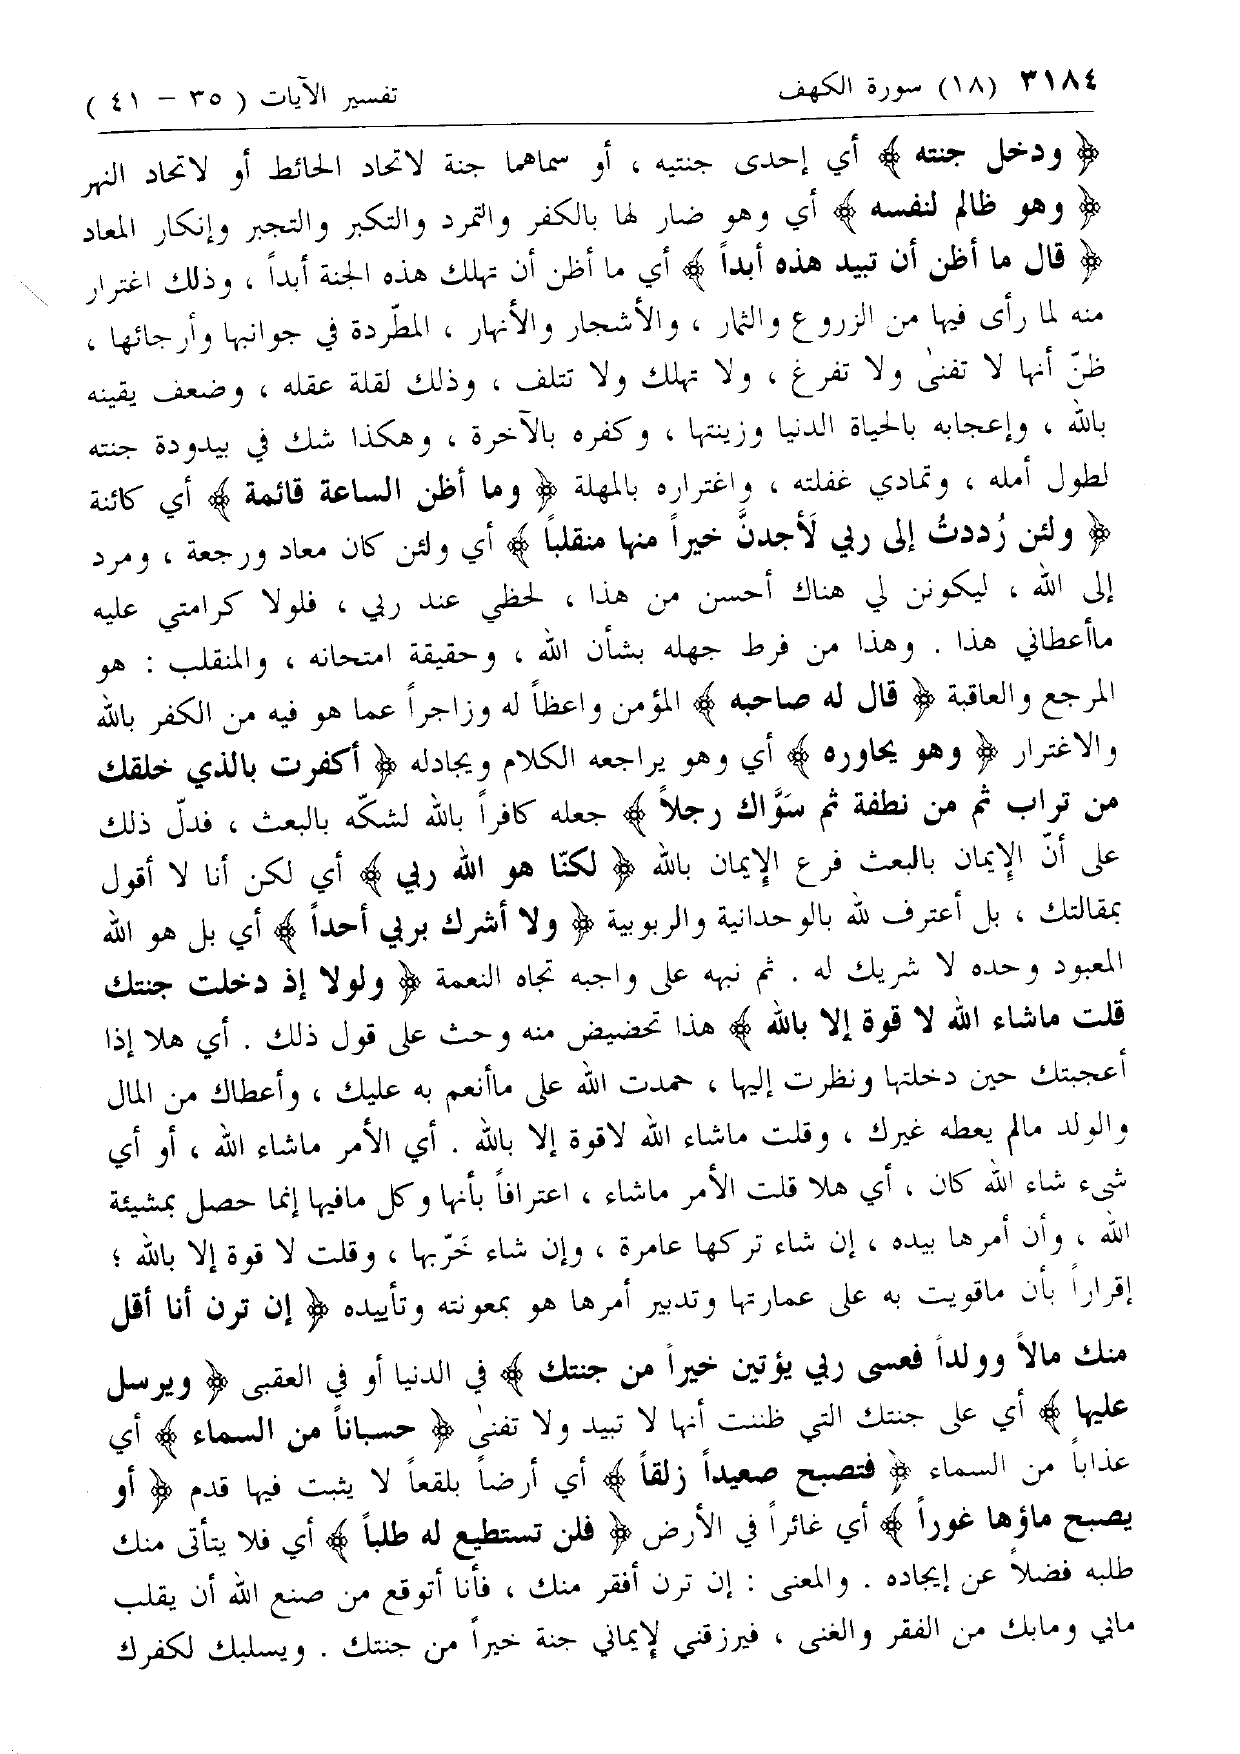 ٣١٨٤ (١٨) سورة الكهف تفسير الآيات ( ٣٥ – ٤١ )
﴿ ودخل جنته ﴾ أي إحدى جنتيه ، أو سماهما جنة لاتحاد الحائط أو لاتحاد النهر
﴿ وهو ظالم لنفسه ﴾ أي وهو ضار لها بالكفر والتمرد والتكبر والتجبر وإنكار المعاد
﴿ قال ما أظن أن تبيد هذه أبداً ﴾ أي ما أظن أن تهلك هذه الجنة أبداً ، وذلك اغترار
منه لما رأى فيها من الزروع والثمار ، والأشجار والأنهار ، المطّردة في جوانبها وأرجائها ،
ظنّ أنها لا تفنىٰ ولا تفرغ ، ولا تهلك ولا تتلف ، وذلك لقلة عقله ، وضعف يقينه
بالله ، وإعجابه بالحياة الدنيا وزينتها ، وكفره بالآخرة ، وهكذا شك في بيدودة جنته
لطول أمله ، وتمادي غفلته ، واغتراره بالمهلة ﴿ وما أظن الساعة قائمة ﴾ أي كائنة
﴿ ولئن رُددتُ إلى ربي لَأجدنَّ خيراً منها منقلباً ﴾ أي ولئن كان معاد ورجعة ، ومرد
إلى الله ، ليكونن لي هناك أحسن من هذا ، لحظي عند ربي ، فلولا كرامتي عليه
ماأعطاني هذا . وهذا من فرط جهله بشأن الله ، وحقيقة امتحانه ، والمنقلب : هو
المرجع والعاقبة ﴿ قال له صاحبه ﴾ المؤمن واعظاً له وزاجراً عما هو فيه من الكفر بالله
والاغترار ﴿ وهو يحاوره ﴾ أي وهو يراجعه الكلام ويجادله ﴿ أكفرت بالذي خلقك
من تراب ثم من نطفة ثم سَوَّاك رجلاً ﴾ جعله كافراً بالله لشكّه بالبعث ، فدلّ ذلك
على أنّ الإيمان بالبعث فرع الإيمان بالله ﴿ لكنّا هو الله ربي ﴾ أي لكن أنا لا أقول
بمقالتك ، بل أعترف لله بالوحدانية والربوبية ﴿ ولا أشرك بربي أحداً ﴾ أي بل هو الله
المعبود وحده لا شريك له . ثم نبهه على واجبه تجاه النعمة ﴿ ولولا إذ دخلت جنتك
قلت ماشاء الله لا قوة إلا بالله ﴾ هذا تحضيض منه وحث على قول ذلك . أي هلا إذا
أعجبتك حين دخلتها ونظرت إليها ، حمدت الله على ماأنعم به عليك ، وأعطاك من المال
والولد مالم يعطه غيرك ، وقلت ماشاء الله لاقوة إلا بالله . أي الأمر ماشاء الله ، أو أي
شيء شاء الله كان ، أي هلا قلت الأمر ماشاء ، اعترافاً بأنها وكل مافيها إنما حصل بمشيئة
الله ، وأن أمرها بيده ، إن شاء تركها عامرة ، وإن شاء خَرّبها ، وقلت لا قوة إلا بالله ؛
إقراراً بأن ماقويت به على عمارتها وتدبير أمرها هو بمعونته وتأييده ﴿ إن ترن أنا أقل
منك مالاً وولداً فعسى ربي يؤتين خيراً من جنتك ﴾ في الدنيا أو في العقبى ﴿ ويرسل
عليها ﴾ أي على جنتك التي ظننت أنها لا تبيد ولا تفنىٰ ﴿ حسباناً من السماء ﴾ أي
عذاباً من السماء ﴿ فتصبح صعيداً زلقاً ﴾ أي أرضاً بلقعاً لا يثبت فيها قدم ﴿ أو
يصبح ماؤها غوراً ﴾ أي غائراً في الأرض ﴿ فلن تستطيع له طلباً ﴾ أي فلا يتأتى منك
طلبه فضلاً عن إيجاده . والمعنى : إن ترن أفقر منك ، فأنا أتوقع من صنع الله أن يقلب
مابي ومابك من الفقر والغنى ، فيرزقني لإيماني جنة خيراً من جنتك . ويسلبك لكفرك